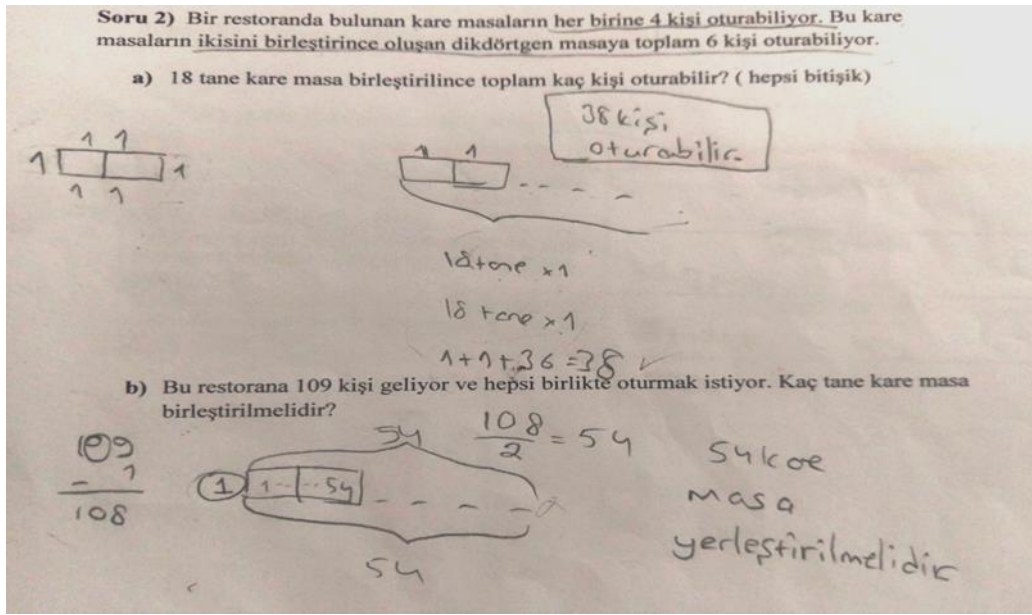 Soru 2) Bir restoranda bulunan kare masaların her birine 4 kişi oturabiliyor. Bu kare
masaların ikisini birleştirince oluşan dikdörtgen masaya toplam 6 kişi oturabiliyor.
a) 18 tane kare masa birleştirilince toplam kaç kişi oturabilir? ( hepsi bitişik)
38 kişi
oturabilir.
1 1
1 1
1 1
1 1
18 tane x 1
18 tane x 1
1+1+36=38 ✓
b) Bu restorana 109 kişi geliyor ve hepsi birlikte oturmak istiyor. Kaç tane kare masa
birleştirilmelidir?
109
- 1
108
54
1 1-- --54
54
108
2
= 54
54 kare
masa
yerleştirilmelidir